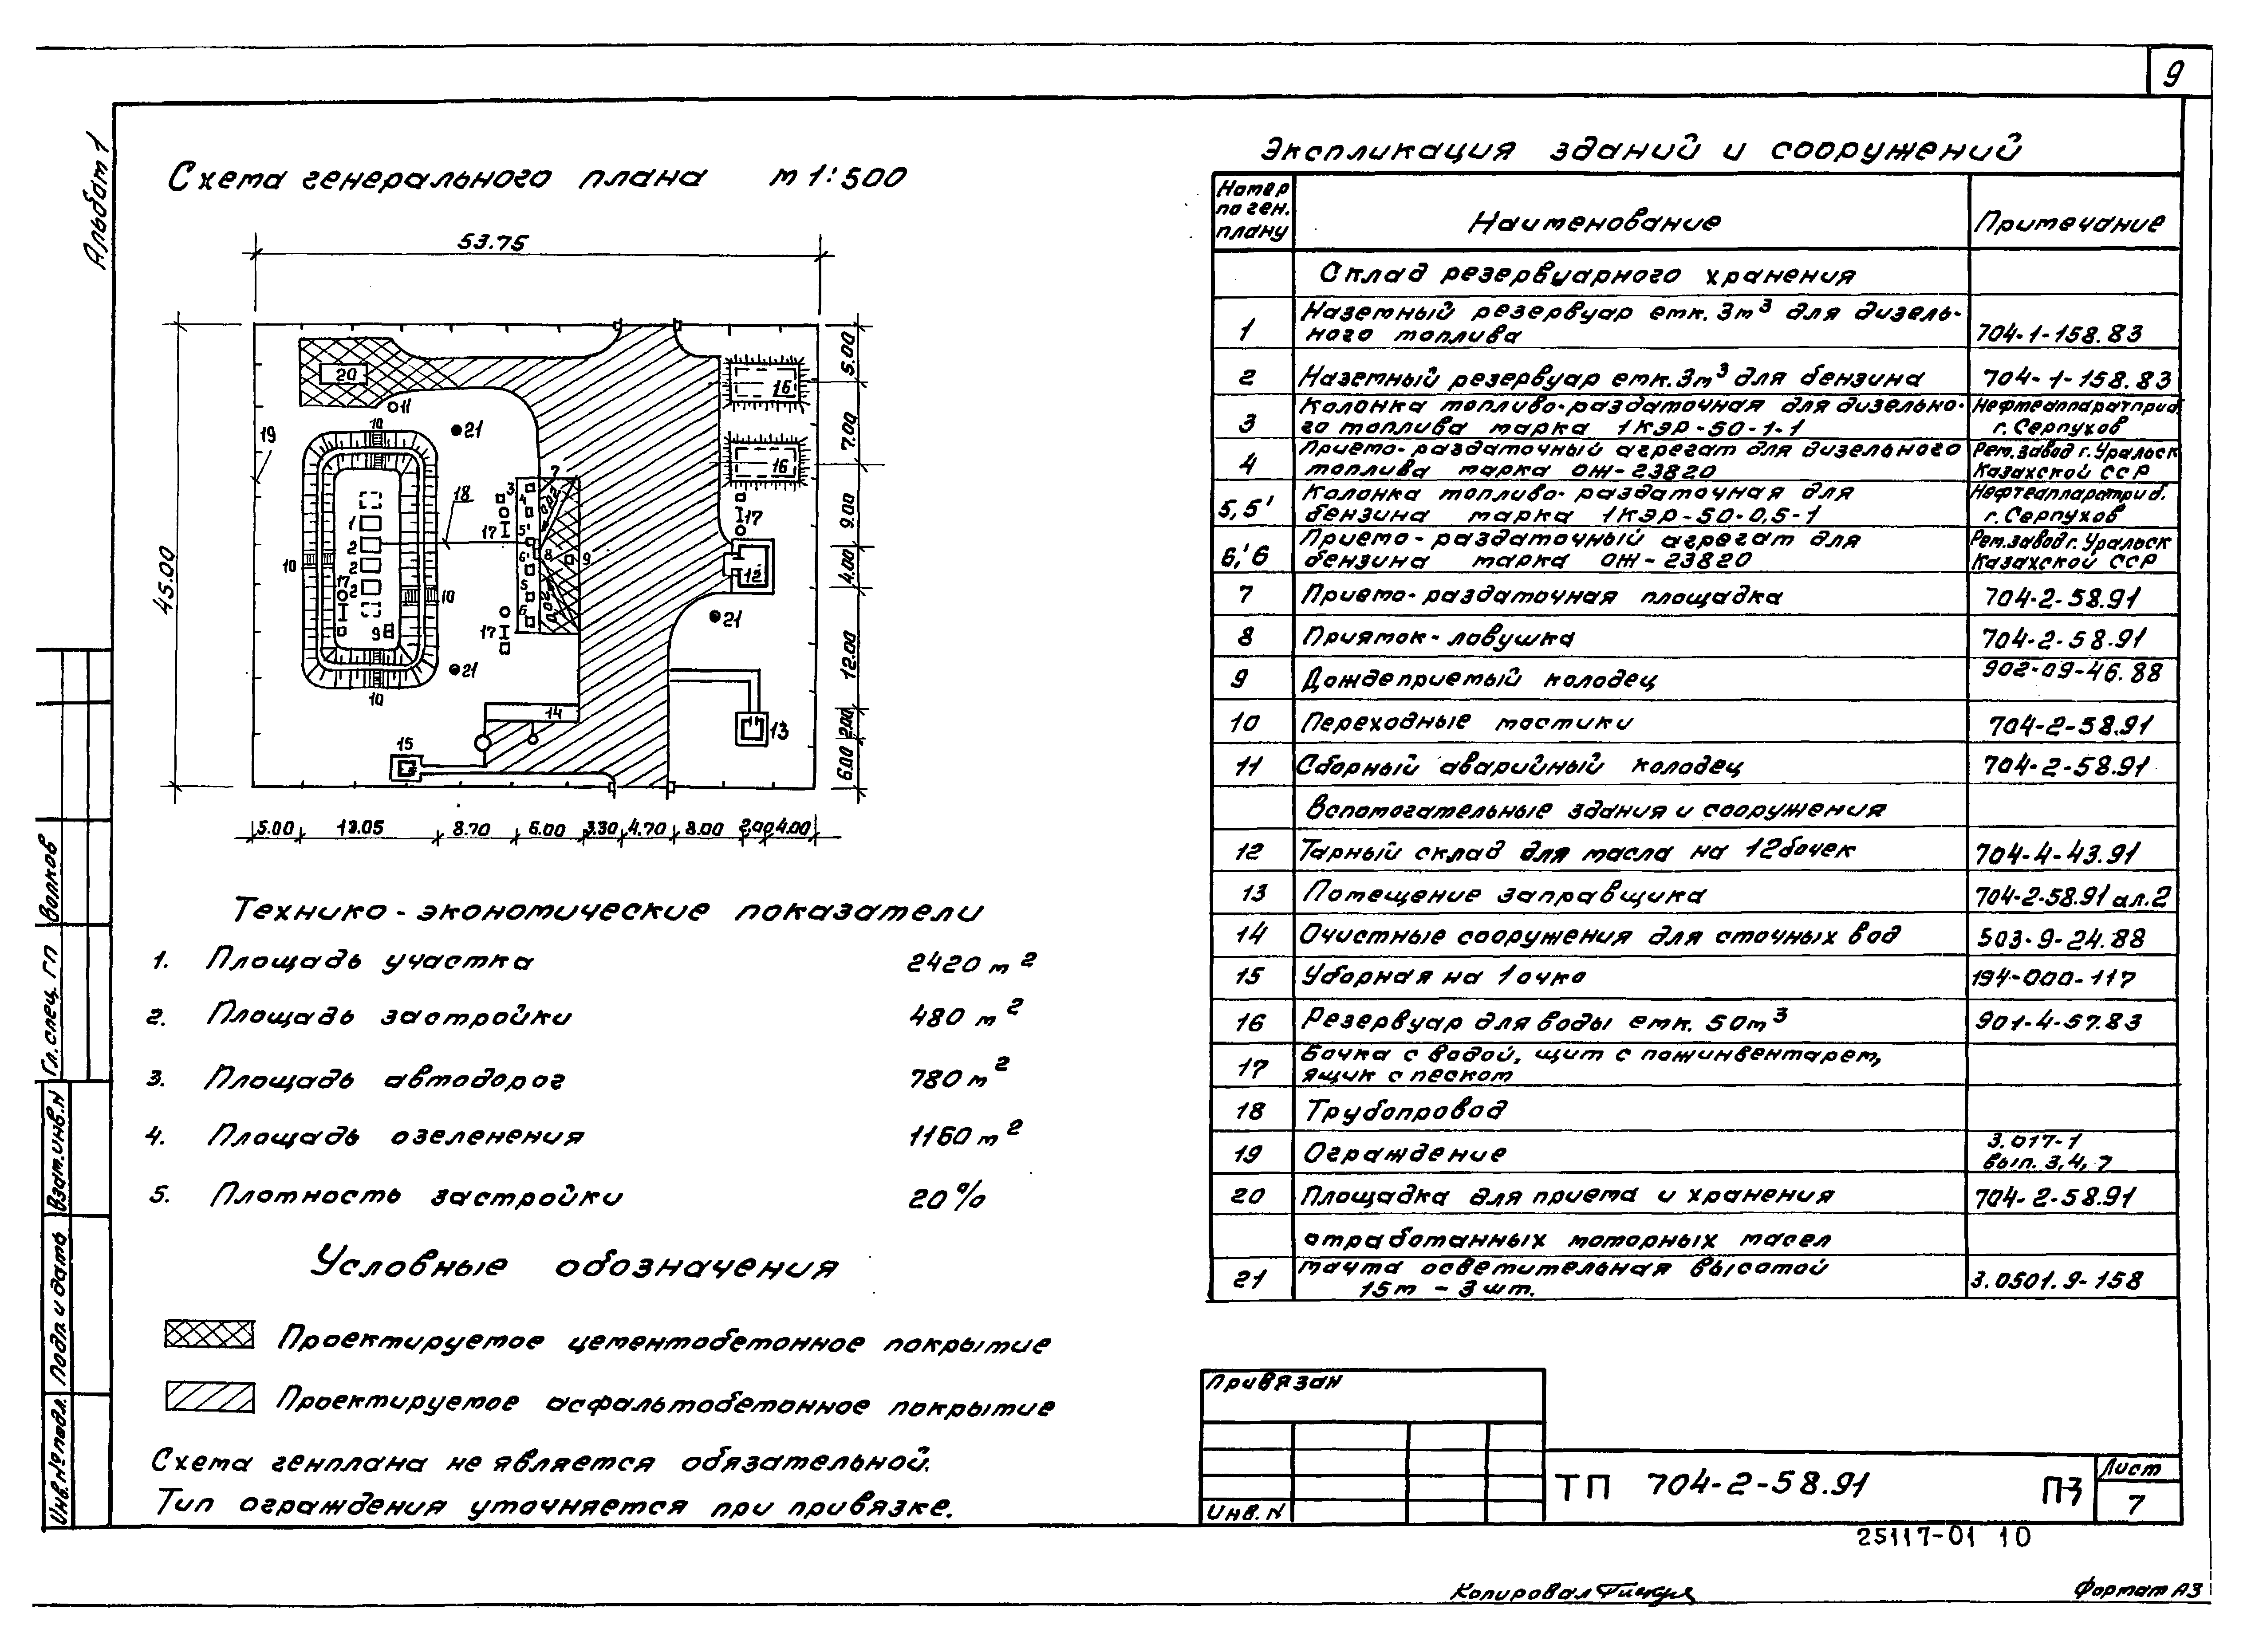 9
Альбом 1
Схема генерального плана м 1:500
53.75
45.00
20
11
21
19
10
18
1
2
2
2
17
9
10
10
10
3
4
5'
6'
5
6
7
8
9
0.02
0.02
17
17
16
16
17
12
21
21
13
14
15
5.00
7.00
9.00
4.00
12.00
2.00
6.00
5.00 13.05 8.70 6.00 3.30 4.70 8.00 2.00 4.00
Технико-экономические показатели
1. Площадь участка 2420 м²
2. Площадь застройки 480 м²
3. Площадь автодорог 780 м²
4. Площадь озеленения 1160 м²
5. Плотность застройки 20%
Условные обозначения
Проектируемое цементобетонное покрытие
Проектируемое асфальтобетонное покрытие
Схема генплана не является обязательной.
Тип ограждения уточняется при привязке.
Экспликация зданий и сооружений
Номер по ген. плану Наименование Примечание
Склад резервуарного хранения
1 Наземный резервуар емк. 3м³ для дизель-
ного топлива 704-1-158.83
2 Наземный резервуар емк. 3м³ для бензина 704-1-158.83
3 Колонка топливо-раздаточная для дизельно- Нефтеаппаратприб.
го топлива марка 1КЭР-50-1-1 г. Серпухов
4 Приемо-раздаточный агрегат для дизельного Рем.завод г.Уральск
топлива марка ОЖ-23820 Казахской ССР
5,5' Колонка топливо-раздаточная для Нефтеаппаратприб.
бензина марка 1КЭР-50-0,5-1 г. Серпухов
6,'6 Приемо-раздаточный агрегат для Рем.завод г.Уральск
бензина марка ОЖ-23820 Казахской ССР
7 Приемо-раздаточная площадка 704-2-58.91
8 Приямок-ловушка 704-2-58.91
9 Дождеприемый колодец 902-09-46.88
10 Переходные мостики 704-2-58.91
11 Сборный аварийный колодец 704-2-58.91
Вспомогательные здания и сооружения
12 Тарный склад для масла на 12 бочек 704-4-43.91
13 Помещение заправщика 704-2-58.91 ал.2
14 Очистные сооружения для сточных вод 503-9-24.88
15 Уборная на 1 очко 194-000-117
16 Резервуар для воды емк. 50м³ 901-4-57.83
17 Бочка с водой, щит с пожинвентарем,
ящик с песком
18 Трубопровод
19 Ограждение 3.017-1
вып. 3,4,7
20 Площадка для приема и хранения 704-2-58.91
отработанных моторных масел
21 мачта осветительная высотой
15м - 3 шт. 3.0501.9-158
Гл.спец. ГП Волков
Взам.инв.N
Подп. и дата
Инв.№подл.
Привязан
Инв. N
ТП 704-2-58.91 ПЗ
Лист
7
25117-01 10
Копировал
Формат А3